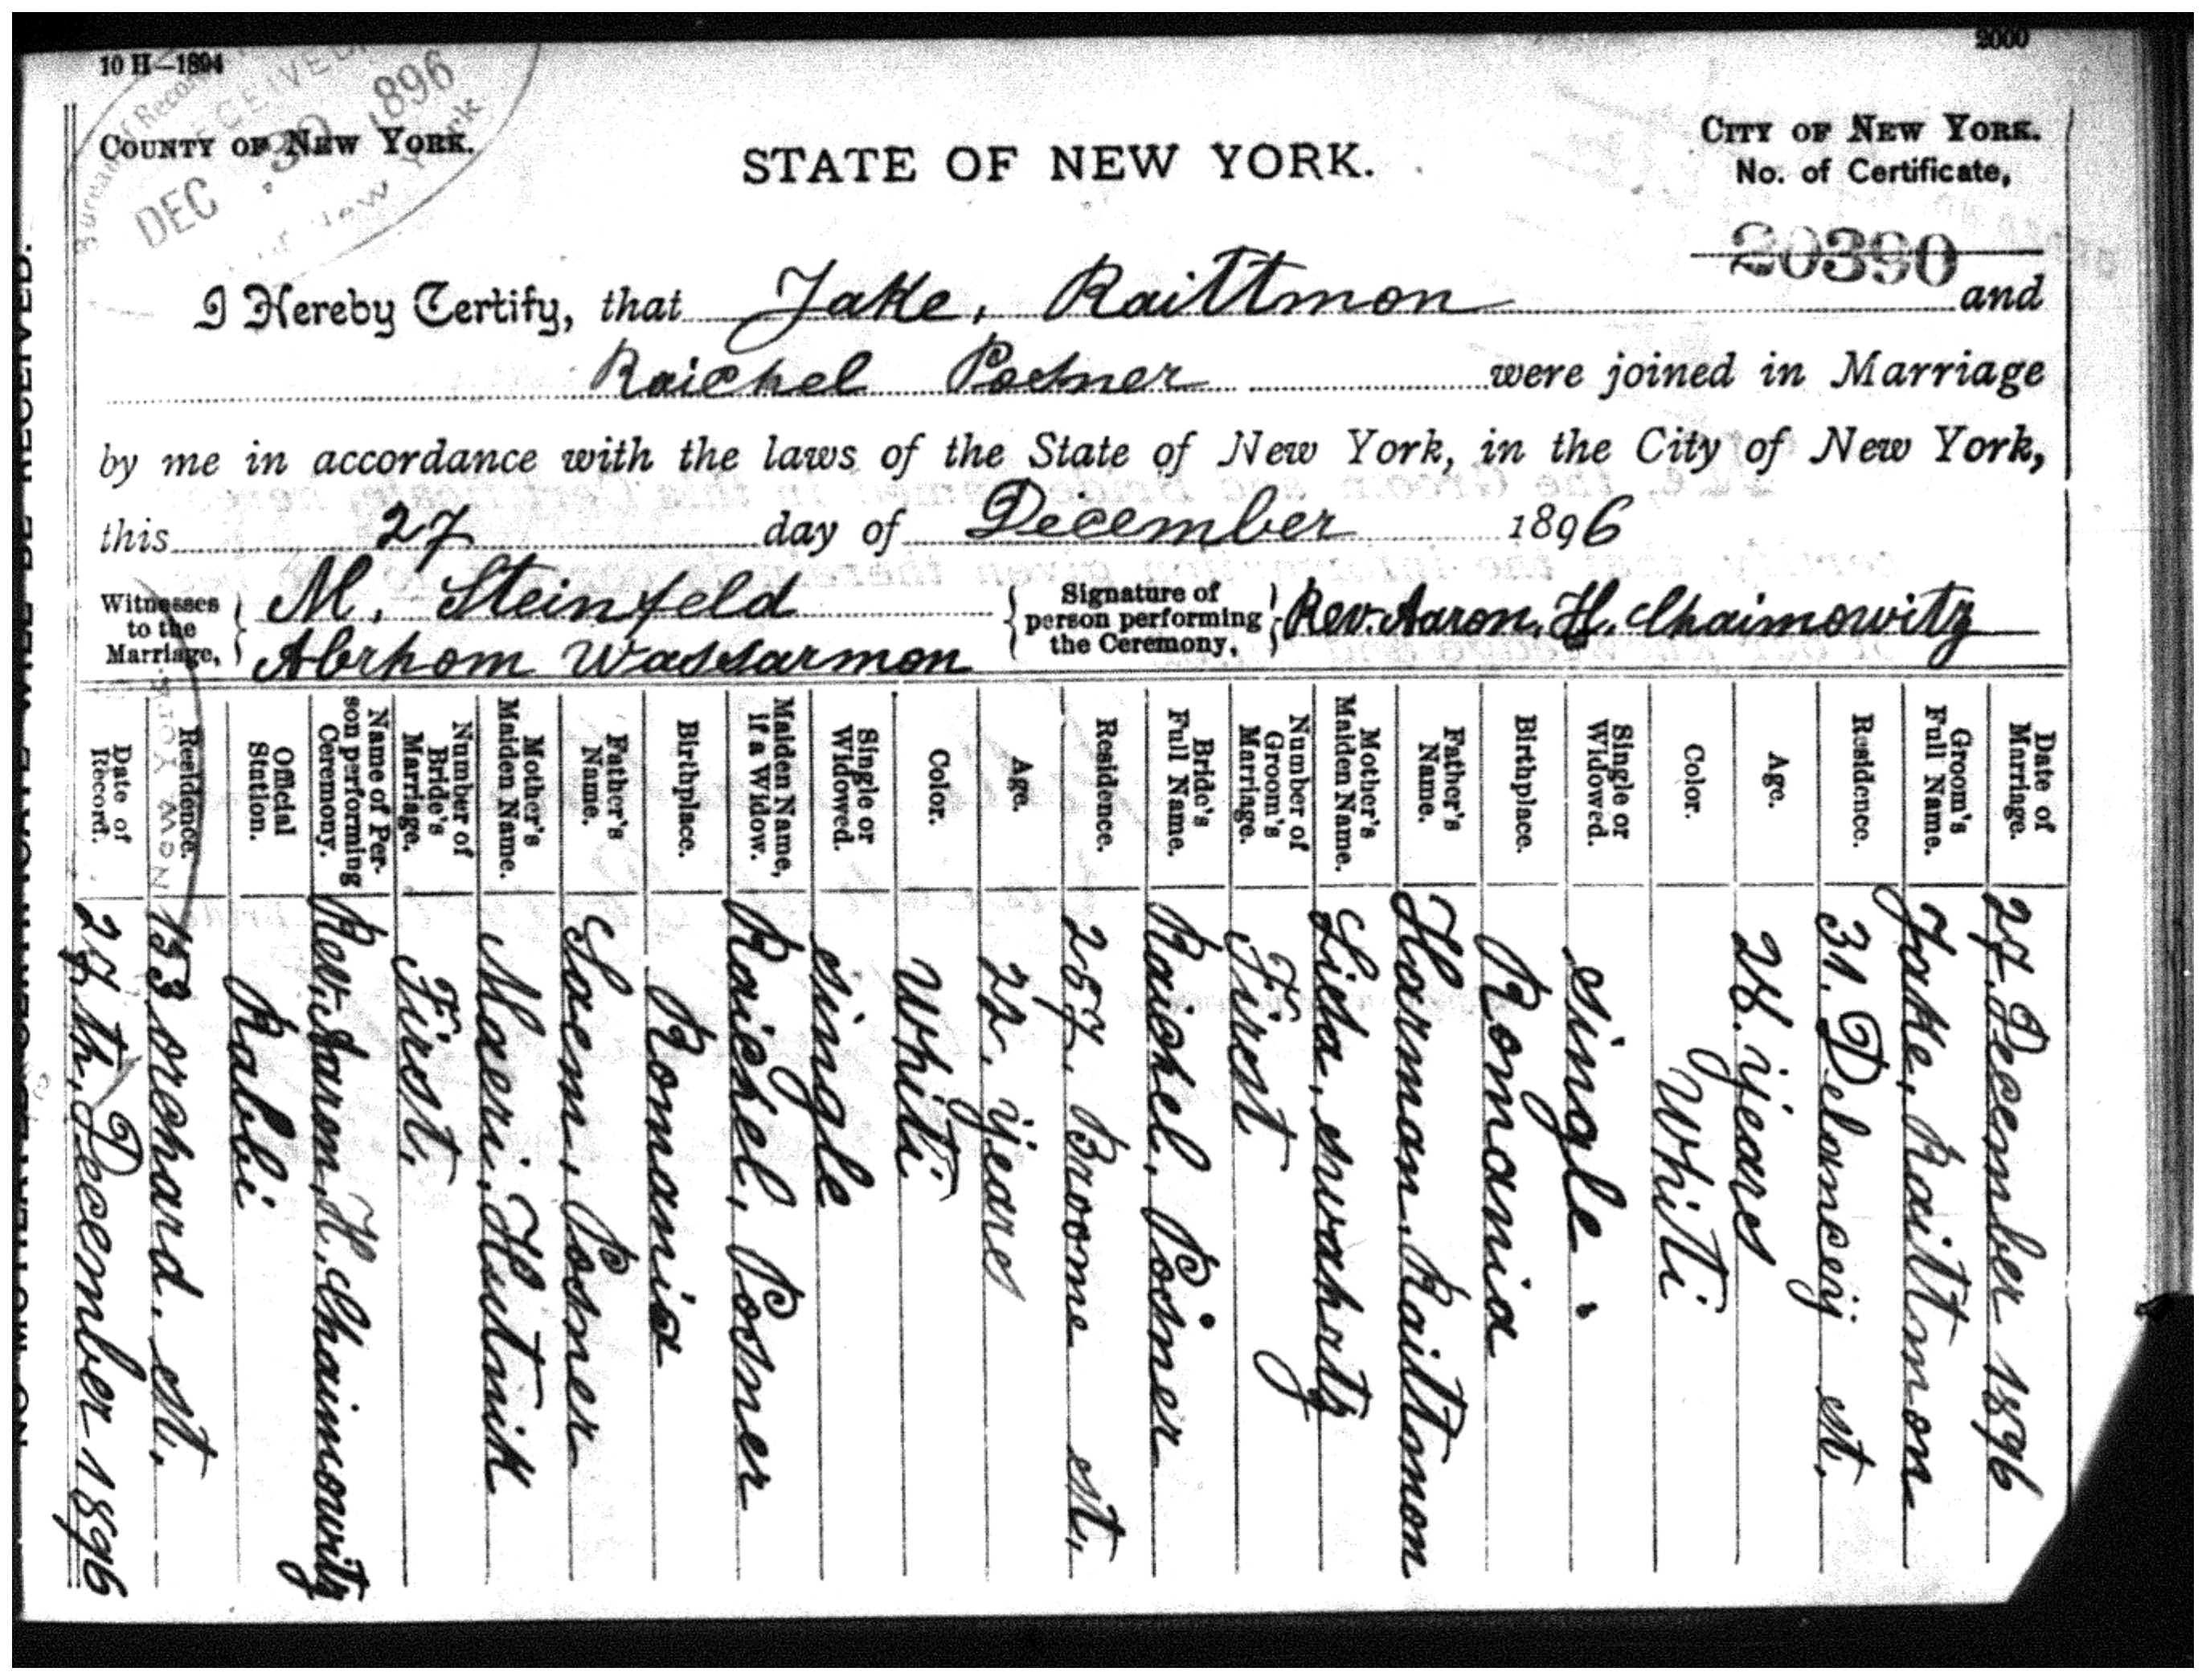 10 H—1894
2000
RECEIVED
DEC 30 1896
COUNTY OF NEW YORK.
STATE OF NEW YORK.
CITY OF NEW YORK.
No. of Certificate,
20390
I Hereby Certify, that Jake, Raittmon and
Raichel Posner were joined in Marriage
by me in accordance with the laws of the State of New York, in the City of New York,
this 27 day of December 1896
Witnesses to the Marriage, M. Steinfeld
Abrhom Wassarmon
Signature of person performing the Ceremony, Rev. Aaron, H. Chaimowitz
Date of Marriage. 27. December 1896
Groom's Full Name. Jake, Raittmon
Residence. 31. Delanceij st.
Age. 28. ijears
Color. Whiti
Single or Widowed. single
Birthplace. Romania
Father's Name. Harman, Raittmon
Mother's Maiden Name. Lisa,
Number of Groom's Marriage. First
Bride's Full Name. Raichel, Posner
Residence. 257, Broome st.
Age. 22. ijears
Color. Whiti
Single or Widowed. single
Maiden Name, if a Widow. Raichel, Posner
Birthplace. Romania
Father's Name. Posner
Mother's Maiden Name. Maeri, Hutnik
Number of Bride's Marriage. First.
Name of Person performing Ceremony. Rev. Aaron, H. Chaimowitz
Official Station. Rabbi
Residence. 153 orchard. st.
Date of Record. 27th, December 1896